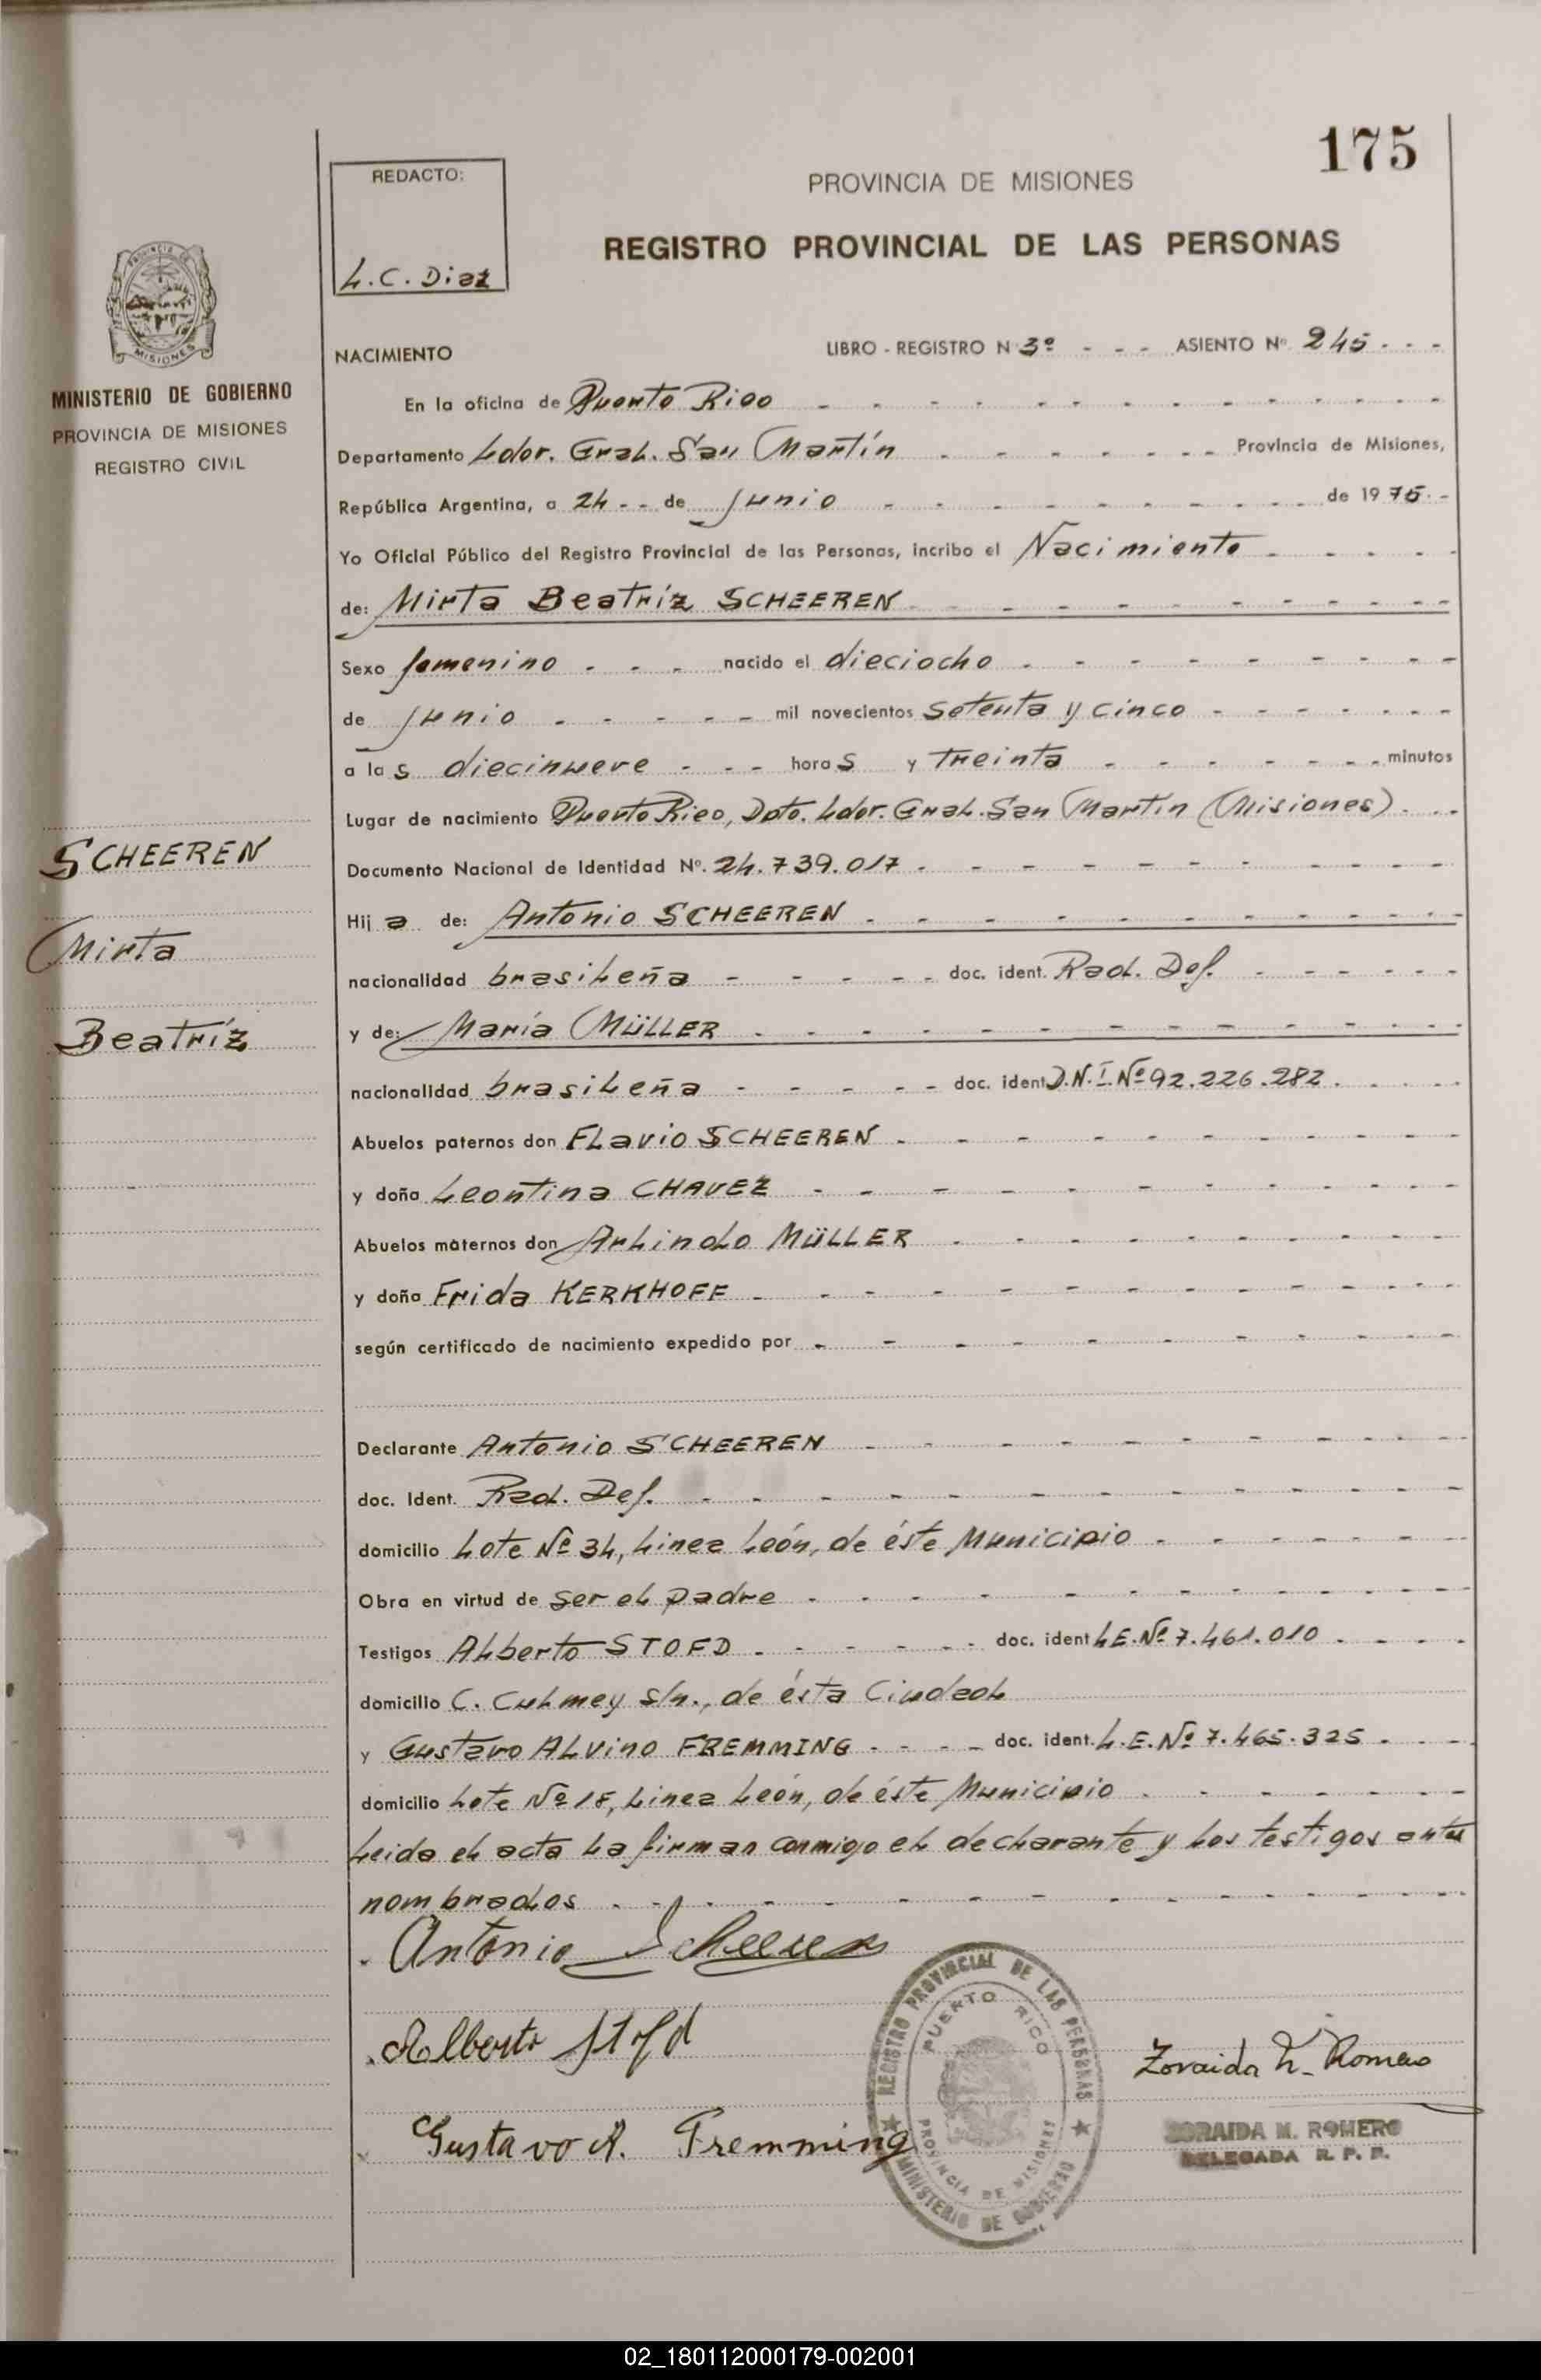 175
REDACTO:
L.C. Diaz
PROVINCIA DE MISIONES
REGISTRO PROVINCIAL DE LAS PERSONAS
PROVINCIA
MISIONES
MINISTERIO DE GOBIERNO
PROVINCIA DE MISIONES
REGISTRO CIVIL
NACIMIENTO LIBRO - REGISTRO N 3º - - - ASIENTO Nº 245 - - -
En la oficina de Puerto Rico
Departamento Ldor. Gral. San Martín Provincia de Misiones,
República Argentina, a 24 - - de Junio de 1975.-
Yo Oficial Público del Registro Provincial de las Personas, incribo el Nacimiento
de: Mirta Beatríz SCHEEREN
Sexo femenino - - - nacido el dieciocho
de Junio mil novecientos setenta y cinco
a las diecinueve - - - horas y treinta minutos
Lugar de nacimiento Puerto Rico, Dpto. Ldor. Gral. San Martín (Misiones).
SCHEEREN
Mirta
Beatríz
Documento Nacional de Identidad Nº. 24.739.017
Hija de: Antonio SCHEEREN
nacionalidad brasileña doc. ident. Rad. Def.
y de: María MÜLLER
nacionalidad brasileña doc. ident. D.N.I. Nº 92.226.282.
Abuelos paternos don Flavio SCHEEREN
y doña Leontina CHAVEZ
Abuelos maternos don Arlindo MÜLLER
y doña Frida KERKHOFF
según certificado de nacimiento expedido por
Declarante Antonio SCHEEREN
doc. Ident. Rad. Def.
domicilio Lote Nº 34, Linea León, de éste Municipio
Obra en virtud de ser el padre
Testigos Alberto STOFD doc. ident L.E. Nº 7.461.010
domicilio C. Culmey s/n., de ésta Ciudad
y Gustavo ALVINO FREMMING doc. ident. L.E. Nº 7.465.325
domicilio Lote Nº 18, Linea León, de éste Municipio
Leida el acta la firman conmigo el declarante y los testigos antes
nombrados
Antonio Scheeren
Alberto Stofd
Gustavo A. Fremming
REGISTRO PROVINCIAL DE LAS PERSONAS
PUERTO RICO
PROVINCIA DE MISIONES
MINISTERIO DE GOBIERNO
Zoraida M. Romero
ZORAIDA M. ROMERO
DELEGADA R. P. P.
02_180112000179-002001